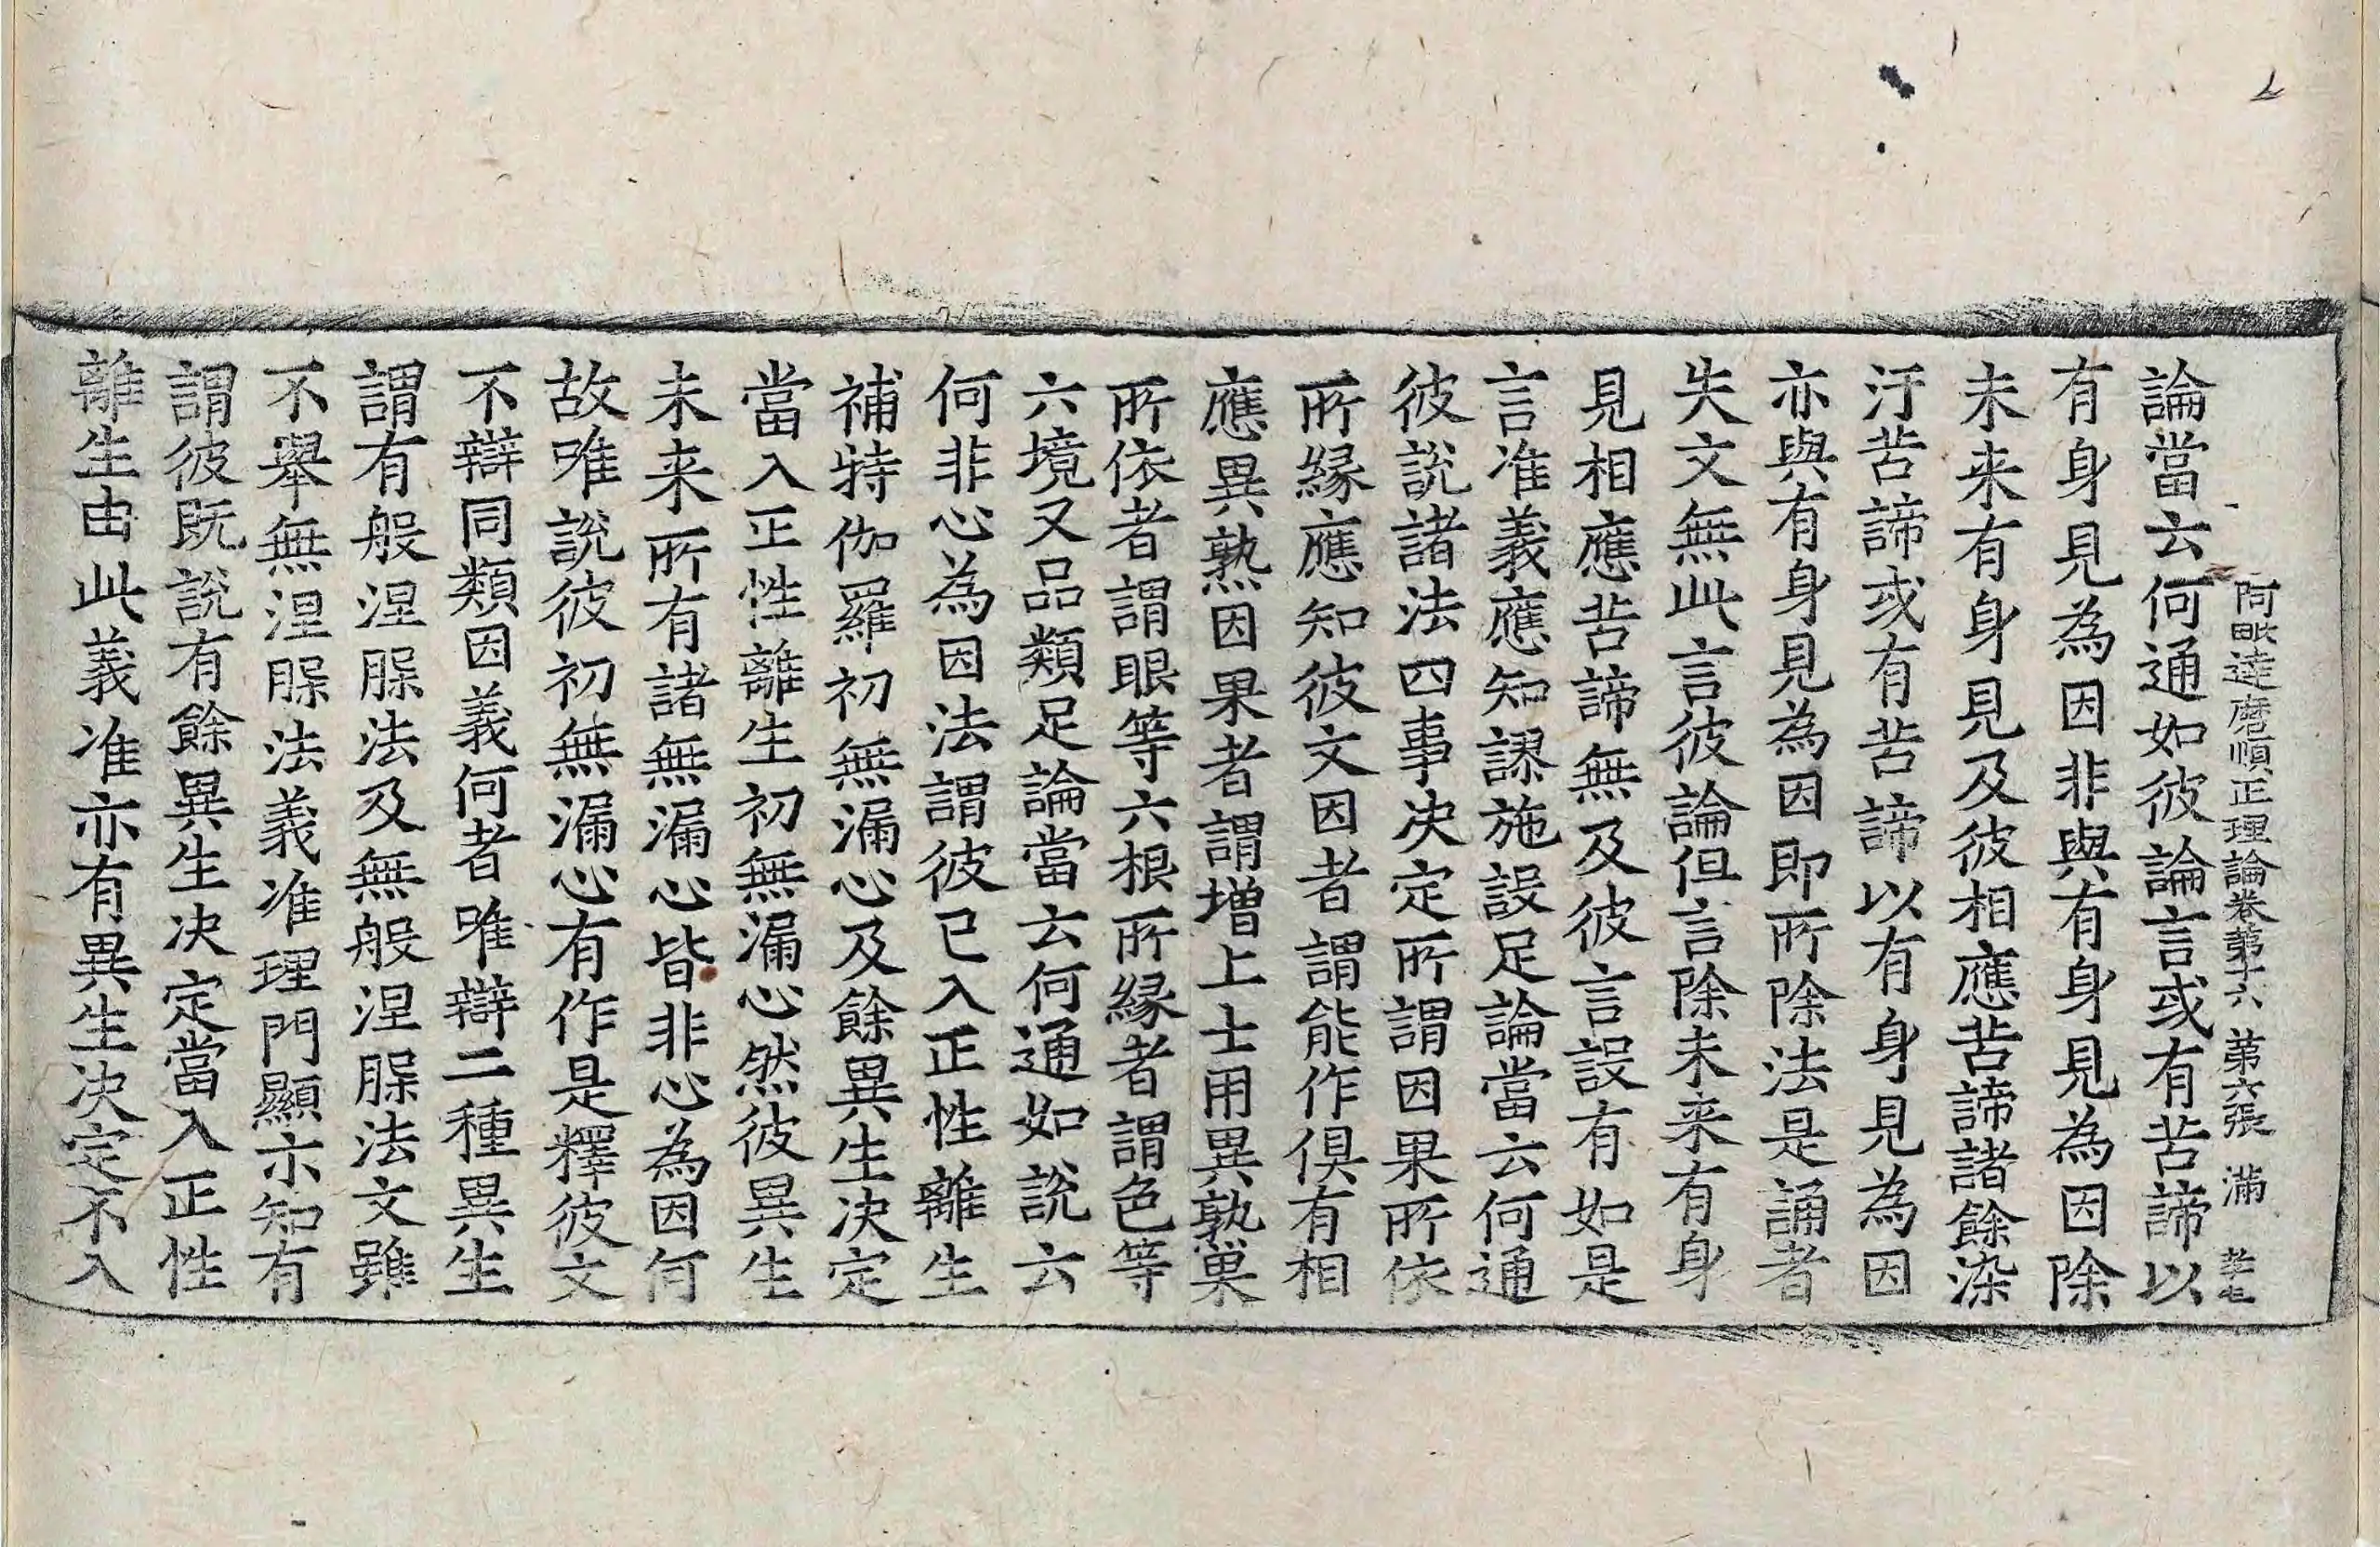 阿毗達磨順正理論卷第十六 第六張 滿
論當云何通如彼論言或有苦諦以
有身見為因非與有身見為因除
未来有身見及彼相應苦諦諸餘染
汙苦諦或有苦諦以有身見為因
亦與有身見為因即所除法是誦者
失文無此言彼論但言除未来有身
見相應苦諦無及彼言設有如是
言准義應知謬施設足論當云何通
彼說諸法四事决定所謂因果所依
所縁應知彼文因者謂能作俱有相
應異熟因果者謂增上士用異熟果
所依者謂眼等六根所縁者謂色等
六境又品類足論當云何通如說云
何非心為因法謂彼已入正性離生
補特伽羅初無漏心及餘異生决定
當入正性離生初無漏心然彼異生
未来所有諸無漏心皆非心為因何
故唯說彼初無漏心有作是釋彼文
不辯同類因義何者唯辯二種異生
謂有般涅槃法及無般涅槃法文雖
不舉無涅槃法義准理門顯亦知有
謂彼既說有餘異生决定當入正性
離生由此義准亦有異生决定不入